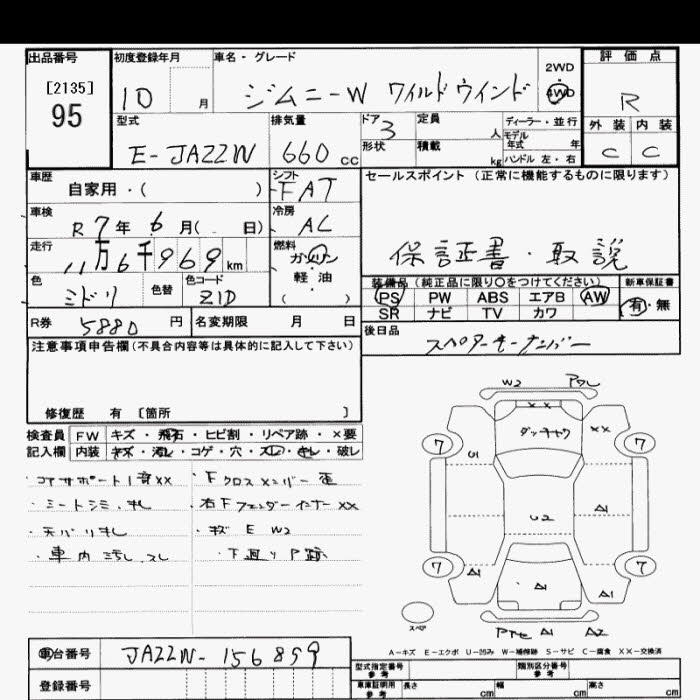 出品番号
[2135]
95
初度登録年月
10 月
車名・グレード
ジムニーW ワイルドウインド
2WD
4WD
評価点
R
型式
E-JA22W
排気量
660 cc
ドア
3
形状
定員
人
積載
kg
ディーラー・並行
モデル
年式 年
ハンドル 左・右
外装 内装
C C
車歴
自家用・( )
シフト
FAT
セールスポイント (正常に機能するものに限ります)
保証書・取説
車検
R 7年 6月( 日)
冷房
AC
走行
11万6千969km
燃料
ガソリン
軽・油
( )
色
ミドリ
色替
色コード
Z1D
装備品 (純正品に限り○をつけてください)
新車保証書
PS PW ABS エアB AW
SR ナビ TV カワ
有・無
R券 5880 円
名変期限 月 日
後日品
スペアキーナンバー
注意事項申告欄(不具合内容等は具体的に記入して下さい)
修復歴 有 [箇所 ]
検査員
記入欄
FW キズ・飛石・ヒビ割・リペア跡・×要
内装 キズ・汚レ・コゲ・穴・スレ・キレ・破レ
・コアサポート
・Fクロスメンバー
・シートシミ・キレ
・右Fフェンダーインナー××
・天バリキレ
・キズ E W2
・車内汚レ、スレ
・下廻りP跡
W2
××
××
U1
U2
A1
A1
A1
A1
A1
A2
7
7
7
7
スペア
A-キズ E-エクボ U-凹み W-補修跡 S-サビ C-腐食 ××-交換済
車台番号
JA22W-156859
登録番号
型式指定番号
参考
類別区分番号
参考
車庫証明用
参考
長さ cm
幅 cm
高さ cm